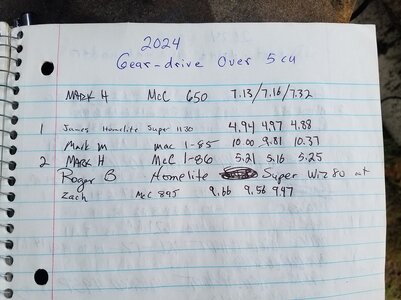 2024
Gear-drive Over 5 cu
MARK H McC 650 7.13/7.16/7.32
1 James Homelite Super 1130 4.94 4.97 4.88
Mark M mac 1-85 10.00 9.81 10.37
2 MARK H McC 1-86 5.21 5.16 5.25
Roger B Homelite Super Wiz 80 cut
Zach McC 895 9.66 9.56 9.97